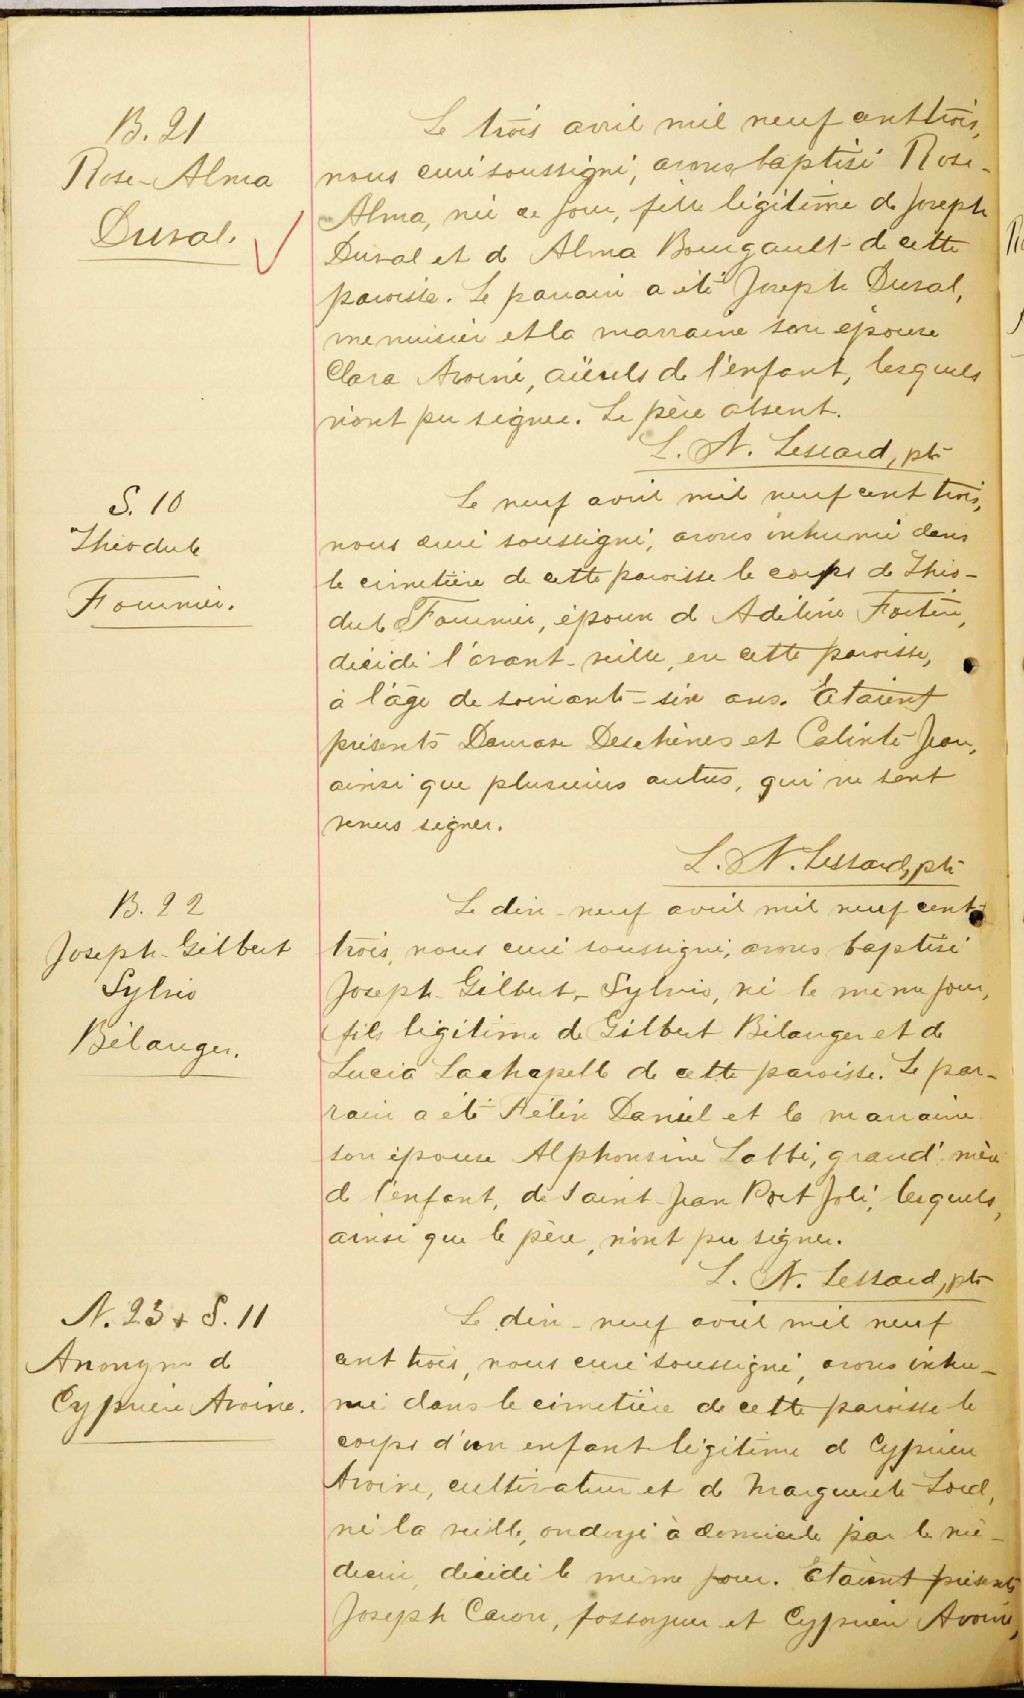 B. 21
Rose-Alma
Duval.
Le trois avril mil neuf cent trois,
nous curé soussigné, avons baptisé Rose-
Alma, née ce jour, fille légitime de Joseph
Duval et de Alma Bourgault de cette
paroisse. Le parrain a été Joseph Duval,
menuisier et la marraine son épouse
Clara Avoine, aïeuls de l'enfant, lesquels
n'ont pu signer. Le père absent.
L. N. Lessard, ptre
S. 10
Théodule
Fournier.
Le neuf avril mil neuf cent trois,
nous curé soussigné, avons inhumé dans
le cimetière de cette paroisse le corps de Théo-
dule Fournier, époux de Adéline Fortin,
décédé l'avant-veille, en cette paroisse,
à l'âge de soixante-six ans. Etaient
présents Damase Deschènes et Jean,
ainsi que plusieurs autres, qui ne sont
venus signer.
L. N. Lessard, ptre
B. 22
Joseph-Gilbert
Sylvio
Bélanger.
Le dix-neuf avril mil neuf cent-
trois, nous curé soussigné, avons baptisé
Joseph-Gilbert-Sylvio, né le même jour,
fils légitime de Gilbert Bélanger et de
Lucia Lachapelle de cette paroisse. Le par-
rain a été Félix Daniel et la marraine
son épouse Alphonsine Labbé, grand'mère
de l'enfant, de Saint Jean Port Joli, lesquels,
ainsi que le père, n'ont pu signer.
L. N. Lessard, ptre
N. 23 + S. 11
Anonyme de
Cyprien Avoine.
Le dix-neuf avril mil neuf
cent trois, nous curé soussigné, avons inhu-
mé dans le cimetière de cette paroisse le
corps d'un enfant légitime de Cyprien
Avoine, cultivateur et de Marguerite Lord,
né la veille, ondoyé à domicile par le mé-
decin, décédé le même jour. Etaient présents
Joseph Caron, fossoyeur et Cyprien Avoine,